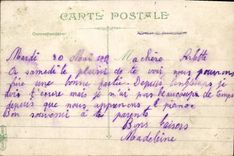 CARTE POSTALE
Correspondance
Mardi 30 Mai Ma chère
A samedi le plaisir de te voir nous pourrons
faire une bonne partie Depuis longtemps je
dois t'écrire mais je n'ai pas beaucoup de temps
depuis que nous apprenons le piano
Bon souvenir à tes parents
Bons baisers
Madeleine